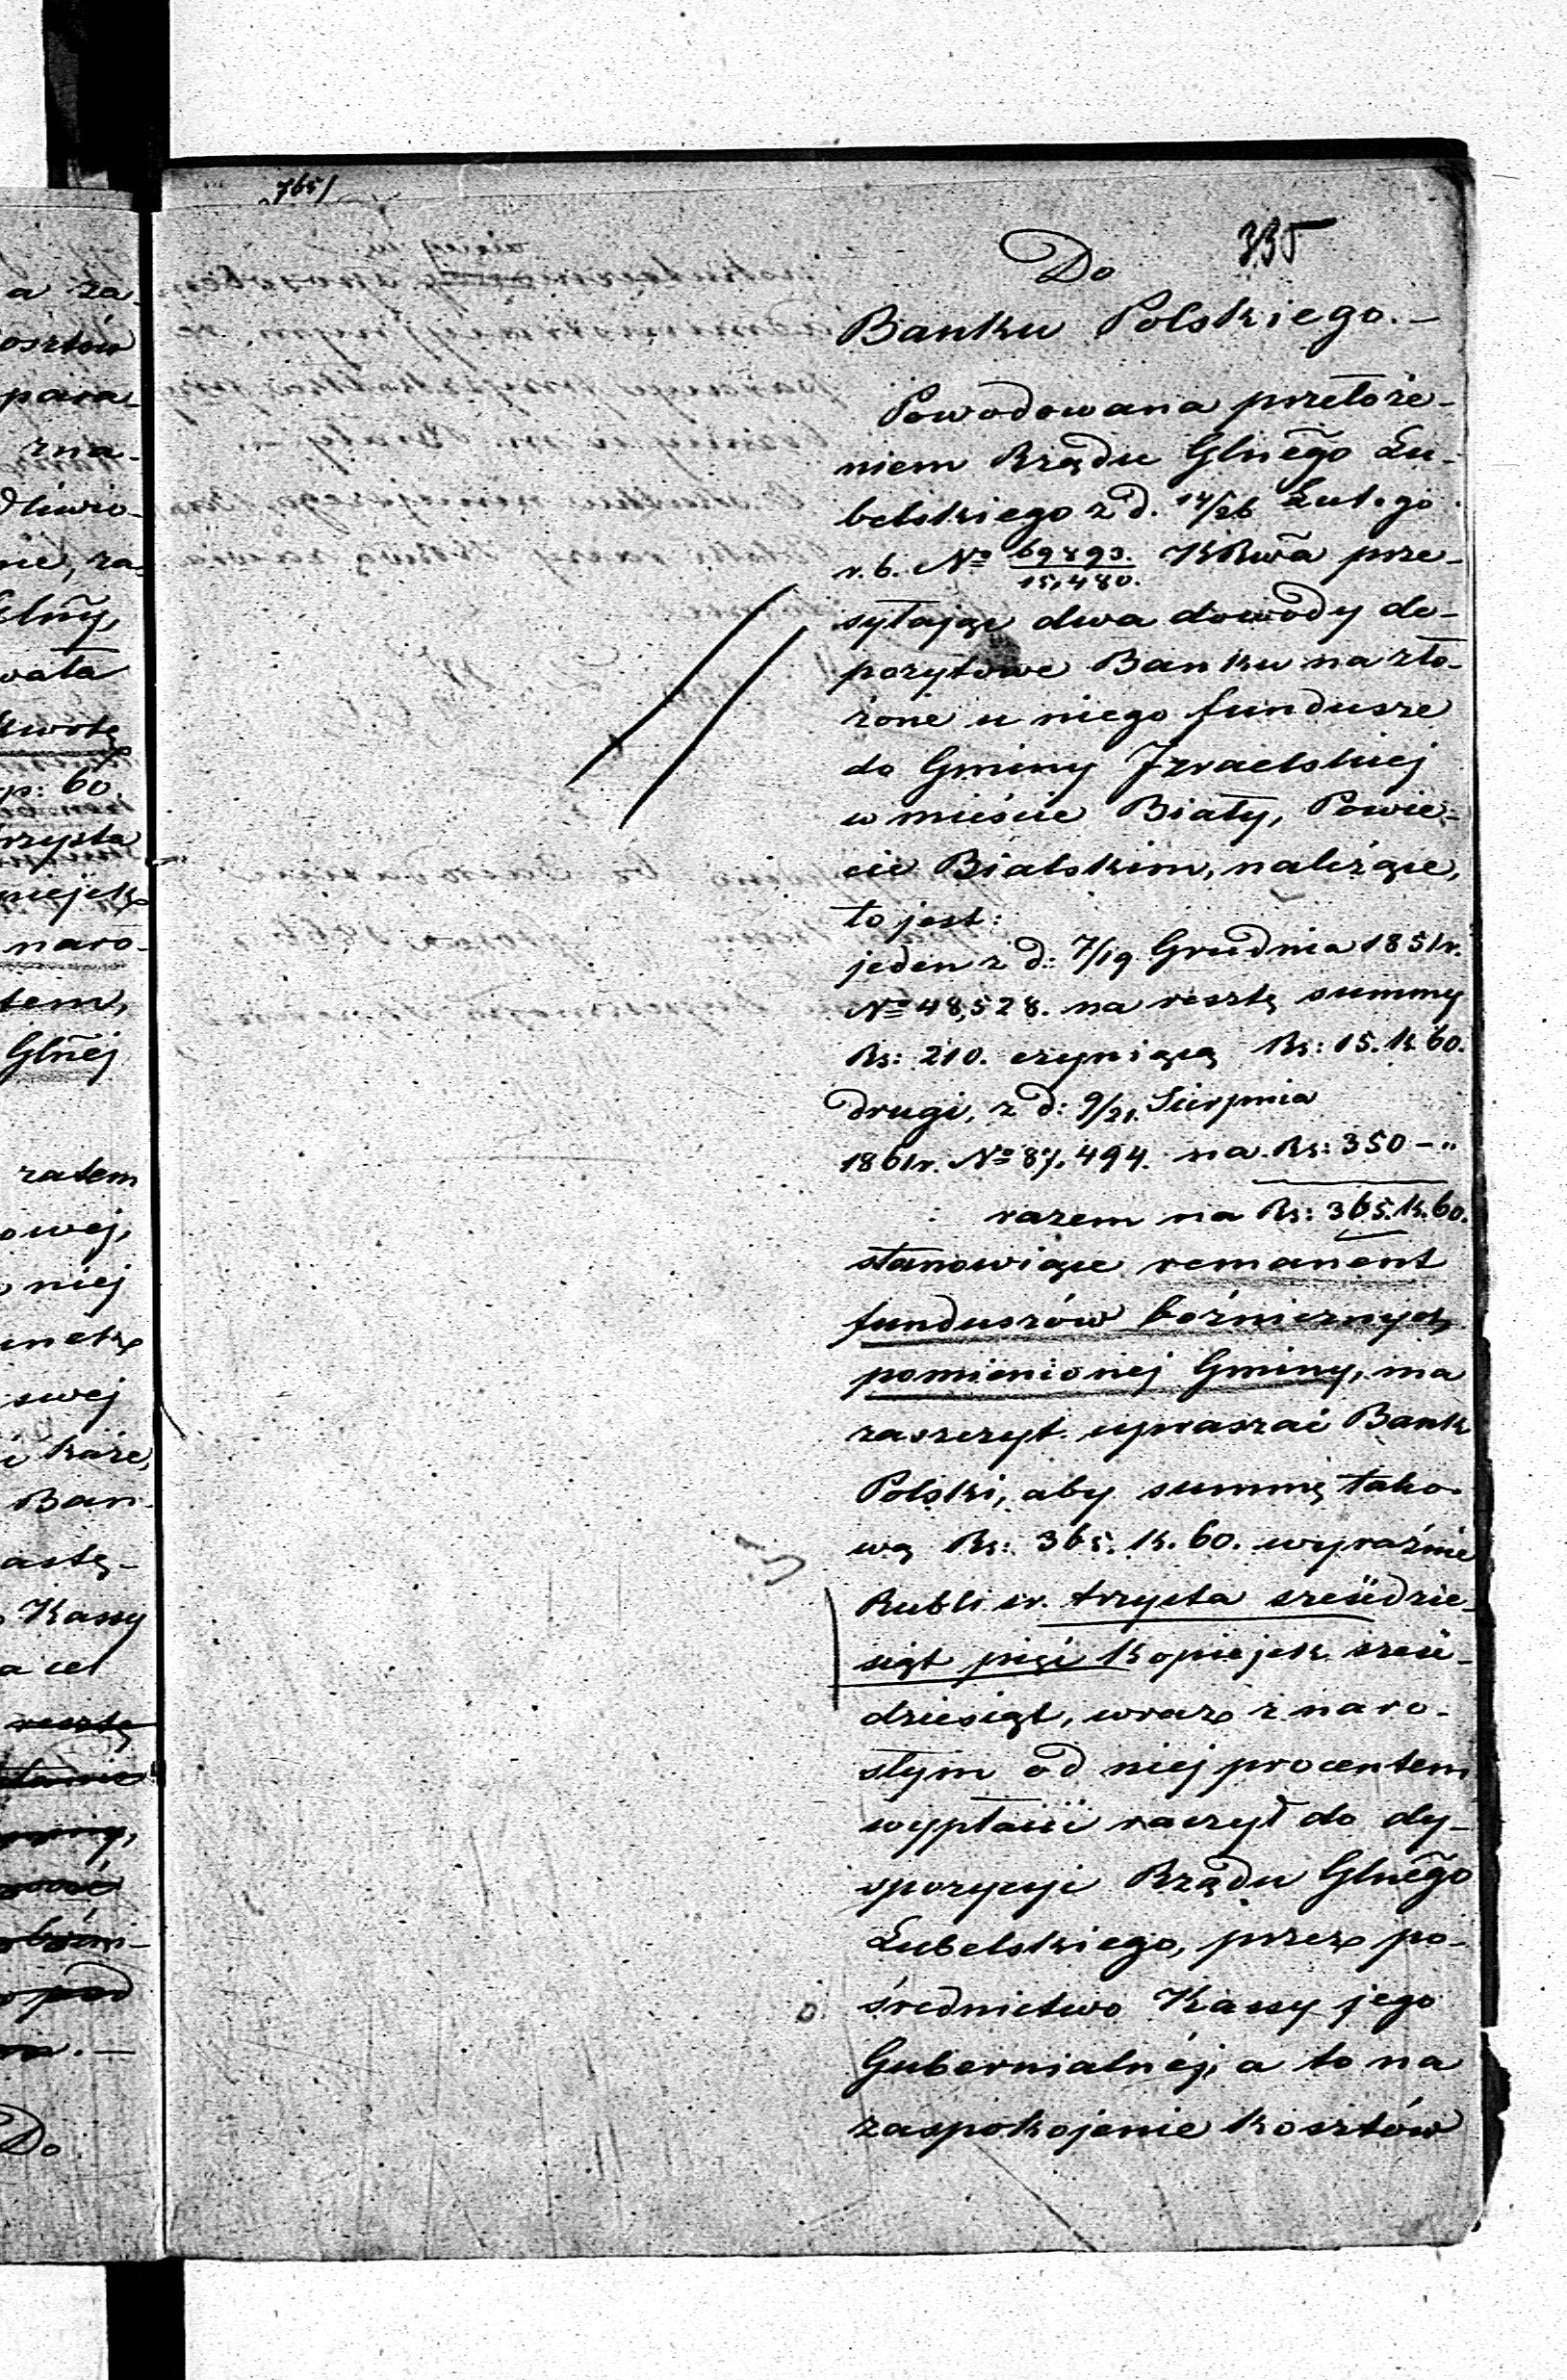 765/
335
Do
Banku Polskiego.—
Powodowana przełoże-
niem Rządu Glnẽgo Lu-
belskiego z d. 14/26 Lutego
r. b. № 69893./15,480. KRwã prze-
syłając dwa dowody de-
pozytowe Banku na zło-
żone u niego fundusze
do Gminy Izraelskiej
w mieście Biały, Powie-
cie Bialskim, należące,
to jest:
jeden z d: 7/19 Grudnia 1851 r.
№ 48,528. na resztę summy
Rs: 210. czyniącą Rs: 15. k. 60.
drugi, z d: 9/21. Sierpnia
1861 r. № 87,494. na Rs: 350 – „
razem na Rs: 365. k. 60.
stanowiące remanent
funduszów bóżniczych
pomienionej Gminy, ma
zaszczyt upraszać Bank
Polski, aby summę tako-
wą Rs: 365. k. 60. wyraźnie
Rubli sr. trzysta sześćdzie-
siąt pięć kopiejek sześć-
dziesiąt, wraz z naro-
słym od niej procentem
wypłacić raczył do dy-
spozycyi Rządu Glnẽgo
Lubelskiego, przez po-
średnictwo Kassy jego
Gubernialnéj, a to na
zaspokojenie kosztów
a za-
osztów
para-
zna-
dliwio-
nie, za-
wała
kwotę
p: 60.
trzysta
piejek
naro-
tem,
Glñej
zatem
owej,
niej
unek
swej
i każe,
Ban-
astę-
Kassy
a cel
resztę
pod
Do